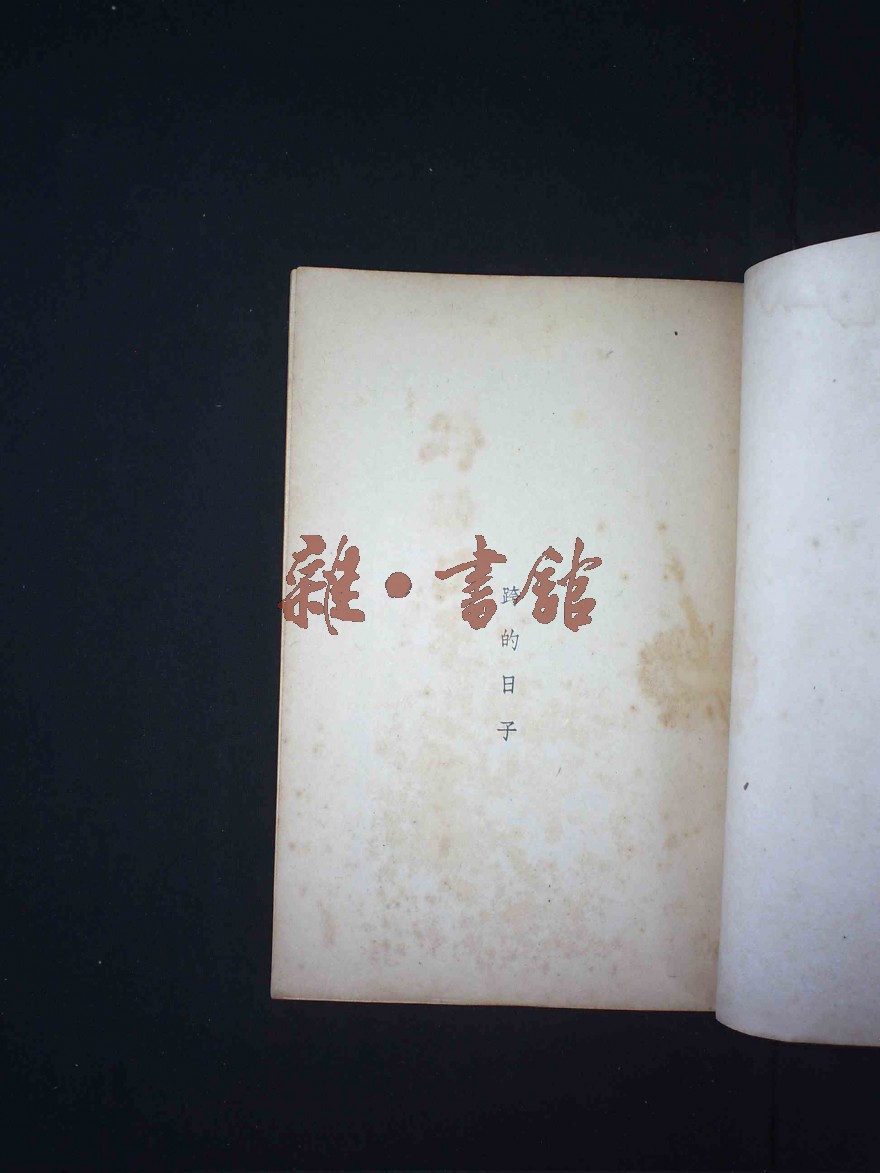 雜·書館
跨的日子